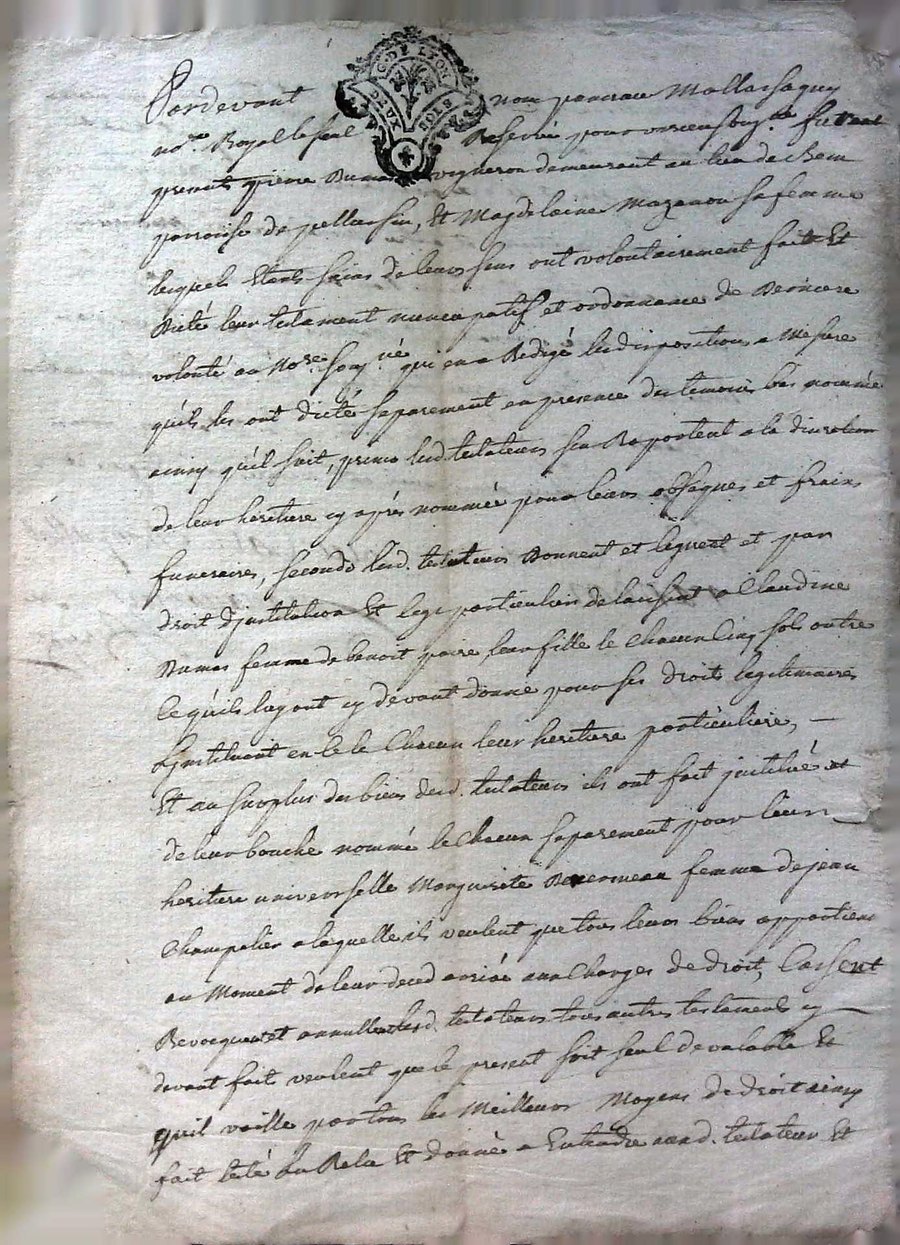 G. DE LYON
DEUX SOLS
Pardevant nous
no.re Royal Reservé pour
presents pierre Dumas vigneron demeurant au lieu de
parroisse de pellussin, Et Magdelaine Mazenou sa femme
lesquels Etants sains de leurs sens ont volontairement fait Et
Dicté leur testament nuncupatif et ordonnance de Derniere
volonté au No.re sousig.né qui en a Redigé les dispositions a Mesure
qu'ils les ont dicté separement en presence des temoins bas nommés
ainsy qu'il suit, primo lesd. testateurs sen Raportent a la discretion
de leur heritiere cy aprés nommée pour leurs obseques et frais
funeraires, secondo lesd. testateurs Donnent et leguent et par
droit d'jnstitution Et legs particulier delaissent a Claudine
Dumas femme de benoit paire leur fille le Chacun Cinq sols outre
ce qu'ils luy ont cy devant donné pour ses droits legitimaires
L'jnstituant en ce le Chacun leur heritiere particuliere,
Et au surplus des biens desd. testateurs ils ont fait jnstitué et
de leur bouche nommé le Chacun separement pour leur
heritiere universelle Marguerite femme de jean
Champalier a laquelle ils veulent que tous leurs biens appartiens
au Moment de leur deced arrivé aux Charges de droit, Cassent
Revocquent et annullent lesd. testateurs tous autres testaments cy
devant fait veulent que le present soit seul de valable Et
qu'il vaille par tous les Meilleurs Moyens de droit ainsy
fait leu Relu Et donné a Entendre auxd. testateurs Et